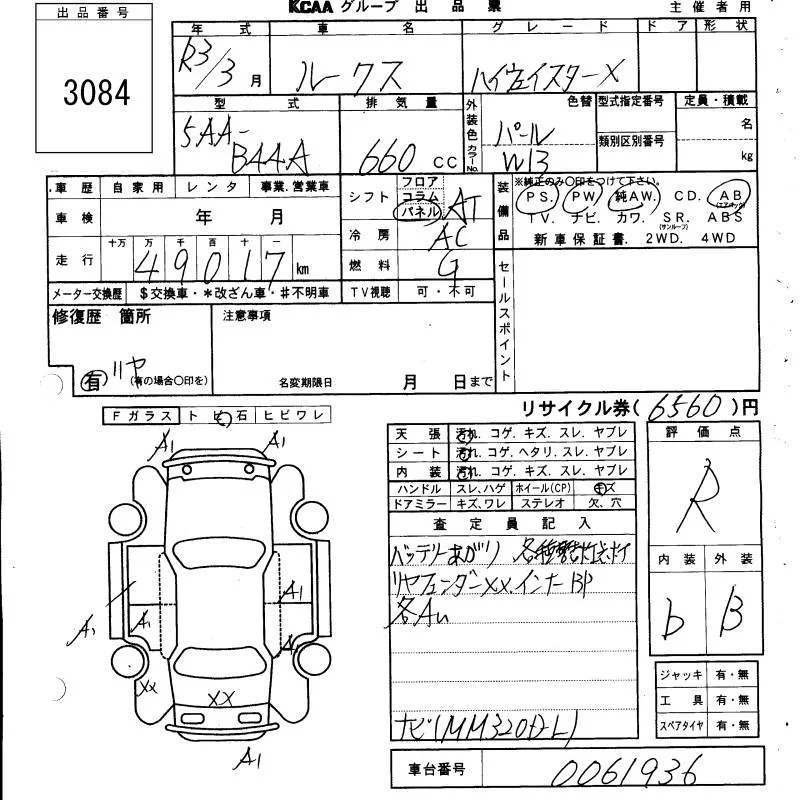 KCAA グループ 出 品 票
主 催 者 用
出 品 番 号
3084
年 式 車 名 グ レ ー ド ド ア 形 状
R3/3 月 ルークス ハイウェイスターX
型 式 排 気 量 外装色 カラーNo. 色替 型式指定番号 定員・積載
5AA-B44A 660 CC パール W13 類別区別番号 名 kg
車 歴 自 家 用 レ ン タ 事業.営業車
車 検 年 月
走 行 十万 万 千 百 十 一
4 9 0 1 7 km
メーター交換歴 $交換車・*改ざん車・#不明車
シフト フロア コラム パネル AT
冷 房 AC
燃 料 G
TV視聴 可・不可
装備品 ※純正のみ○印をつけて下さい。
PS. PW. 純AW. CD. AB (エアバック)
TV. ナビ. カワ. SR. (サンルーフ) ABS
新車保証書. 2WD. 4WD
セールスポイント
修復歴 箇所
リヤ
有 (有の場合○印を)
注意事項
名変期限日 月 日まで
リサイクル券(6560)円
Fガラス ト ビ 石 ヒビワレ
A1 A1
A1
A1 A1
A1 A
XX XX
A1
天 張 汚れ. コゲ. キズ. スレ. ヤブレ
シート 汚れ. コゲ. ヘタリ. スレ. ヤブレ
内 装 汚れ. コゲ. キズ. スレ. ヤブレ
ハンドル スレ、ハゲ ホイール(CP) キズ
ドアミラー キズ、ワレ ステレオ 欠、穴
査 定 員 記 入
バッテリーあがり 各種警告灯点灯
リヤフェンダーXX.インナーBP
各AU
ナビ(MM320D-L)
評 価 点
R
内 装 外 装
b B
ジャッキ 有・無
工 具 有・無
スペアタイヤ 有・無
車台番号 0061936